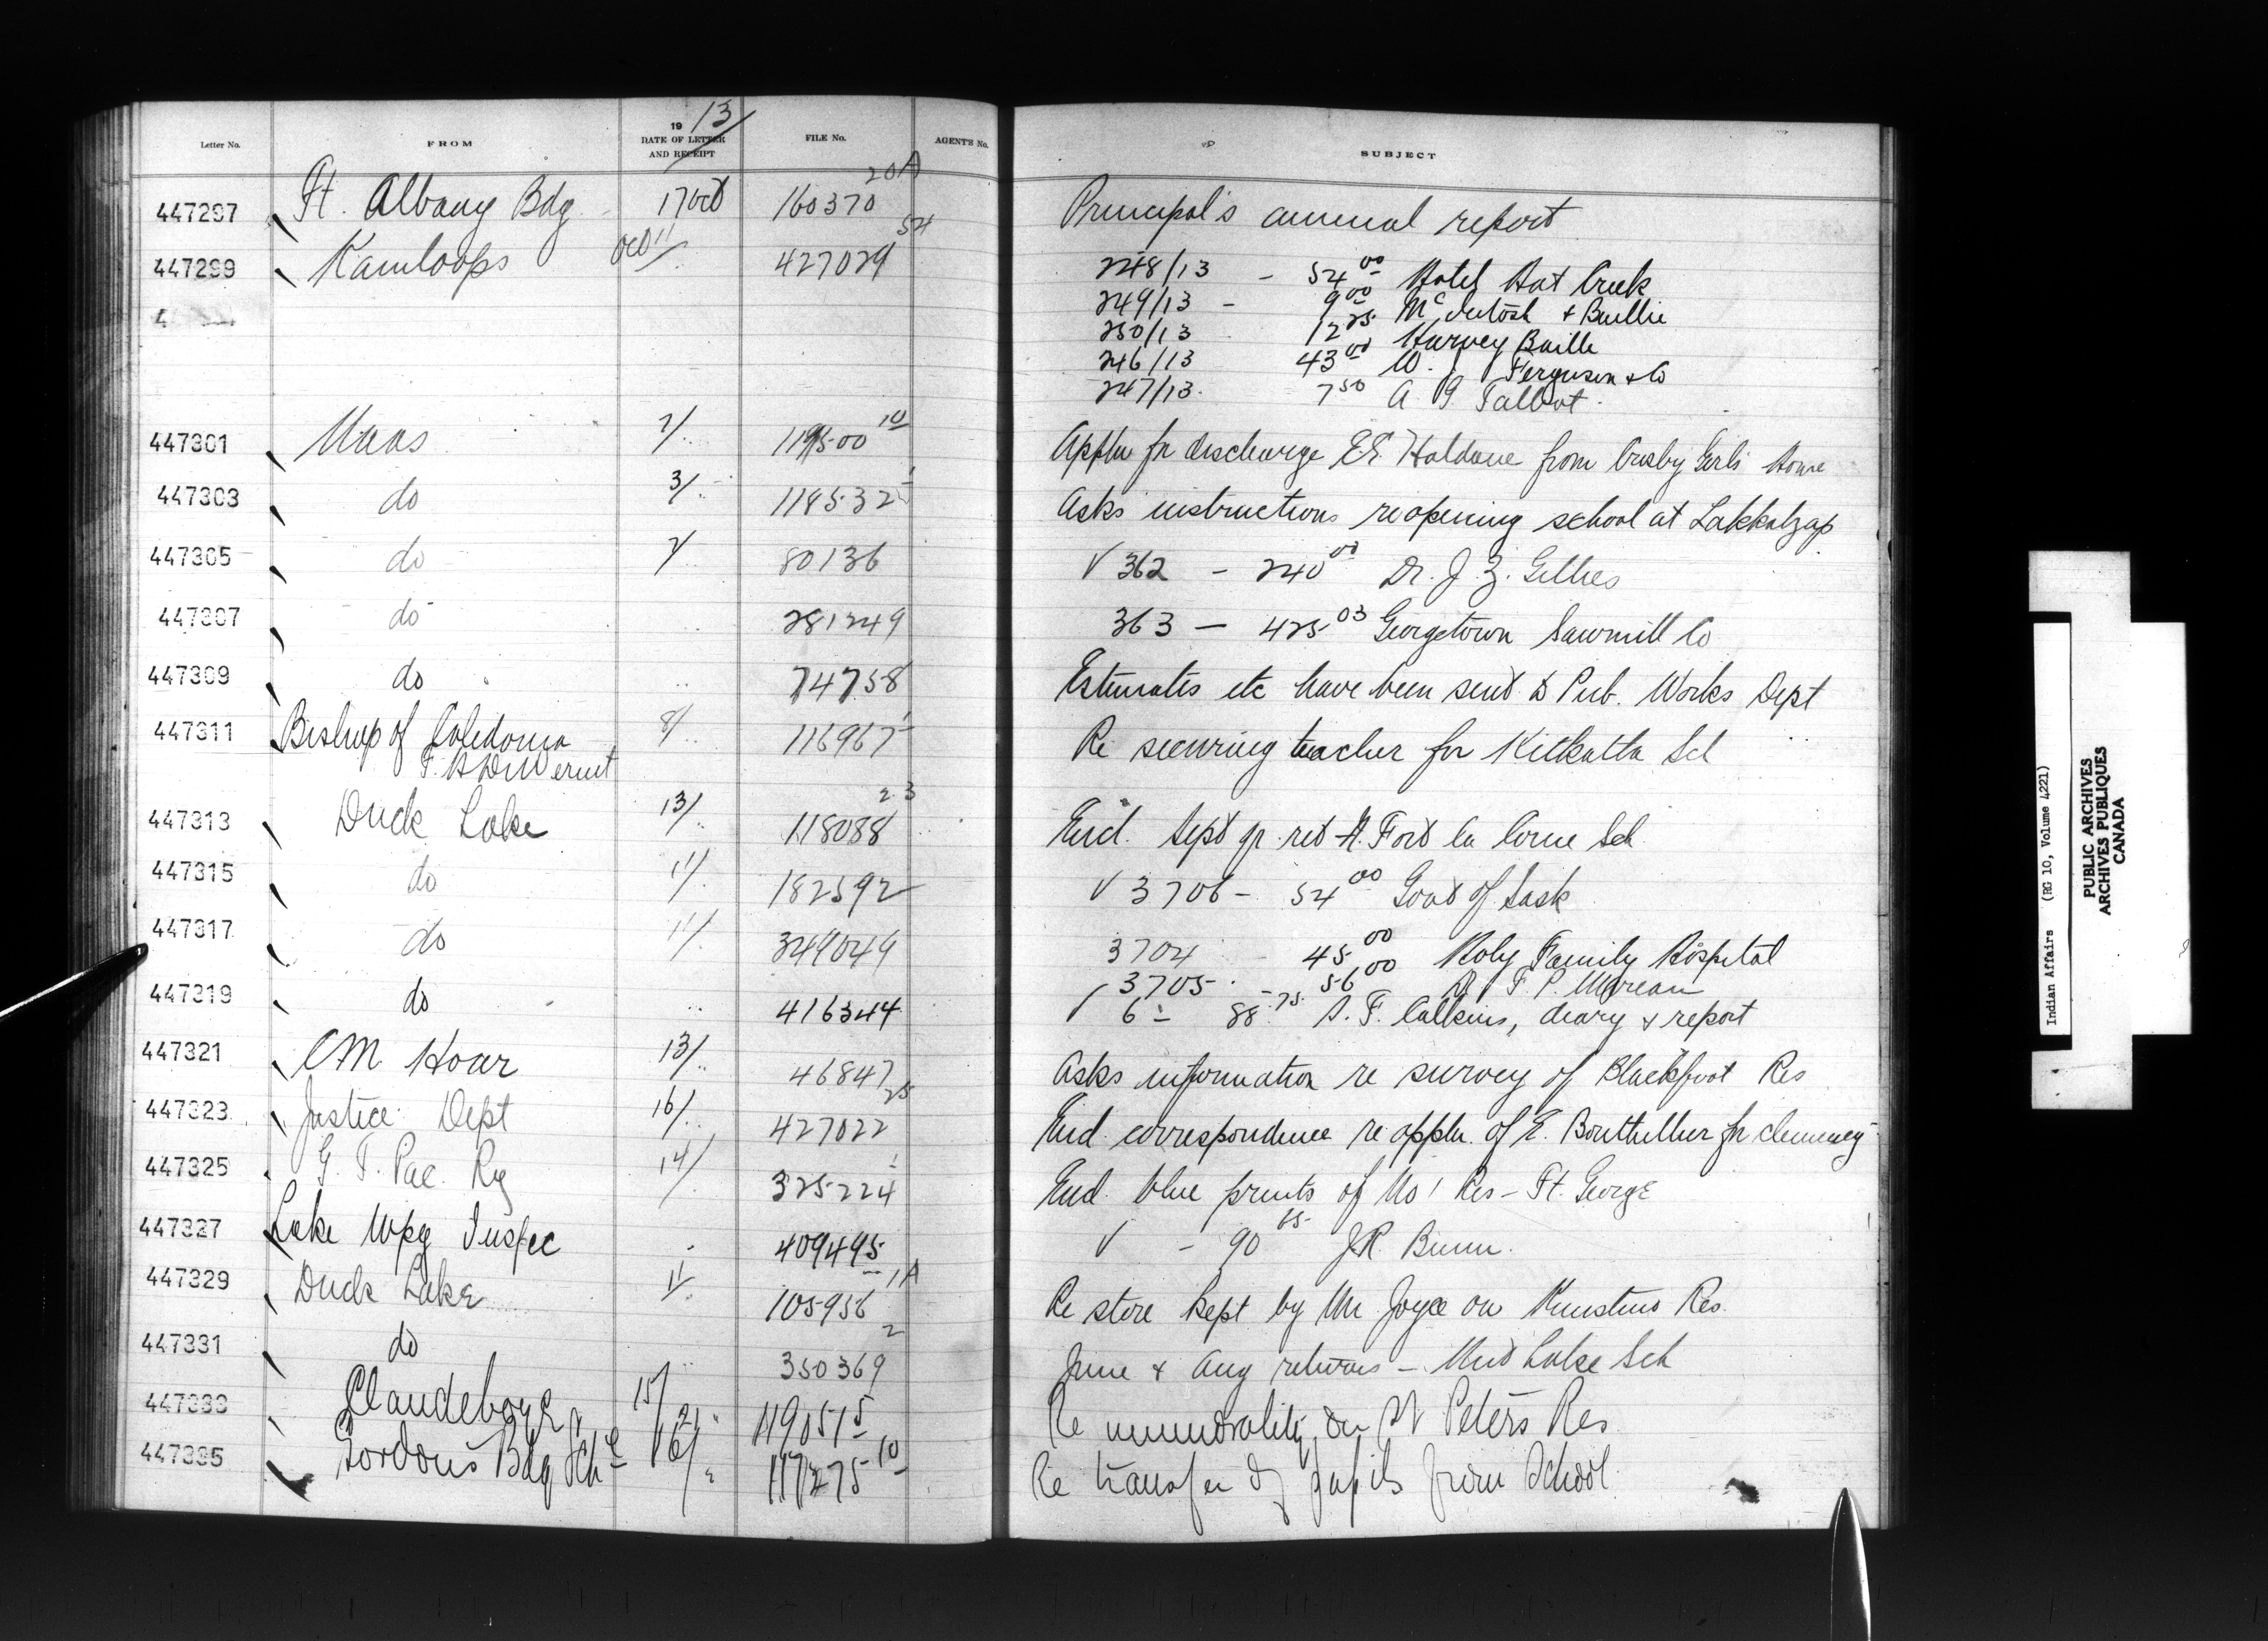 19 13
Letter No. FROM DATE OF LETTER AND RECEIPT FILE No. AGENT'S No. SUBJECT
447297 Ft. Albany Bdg 17 Oct 160370 20A Principal's annual report
447299 Kamloops Oct 11/ 427029 54 248/13 - 54.00 Hotel Hat Creek
249/13 - 9.00 McIntosh & Baillie
250/13 12.25 Harvey Baille
246/13 43.00 W. J. Ferguson & Co
247/13. 7.50 A. G. Talbot
4
447301 Naas 7/ 119500 10 Appln for discharge E.E. Haldane from Crosby Girls Home
447303 do 3/ 118532 1 Asks instructions re opening school at Lakkalzap
447305 do 7/ 80136 V 362 - 240.00 Dr. J. Z. Gillies
447307 do 281249 363 - 425.03 Georgetown Sawmill Co
447309 do 74758 Estimates etc have been sent to Pub. Works Dept
447311 Bishop of Caledonia 8/ 116967 1 Re securing teacher for Kitkatla Sch
F. H. DuVernet
447313 Duck Lake 13/ 118088 23 Encl. Sept qr. ret - Fort la Corne Sch
447315 do 11/ 182592 V 3706 - 54.00 Govt of Sask
447317 do 11/ 349049 3704 - 45.00 Holy Family Hospital
3705 56.00 Dr F. P. Moreau
447319 do 416344 V 6 - 88.75 S. F. Calkins, diary & report
447321 CM Hoar 13/ 46847 Asks information re survey of Blackfoot Res
447323 Justice Dept 16/ 427022 25 Encl correspondence re appln. of E. Bouthillier for clemency
447325 G. T. Pac. Ry 14/ 325224 1 Encl. blue prints of No 1 Res - Ft. George
447327 Lake Wpg Inspec 409495 V - 90.65 J.R. Bunn.
447329 Duck Lake 11/ 105956 1A Re store kept by Mr Joyce on Res.
447331 do 350369 2 June & Aug returns - Mud Lake Sch
447333 Clandeboye 15/ 119051 5 Re immorality on St Peters Res
447335 Gordons Bdg Sch 16/ 117275 10 Re transfer of pupils from School
Indian Affairs (RG 10, Volume 4221)
PUBLIC ARCHIVES
ARCHIVES PUBLIQUES
CANADA